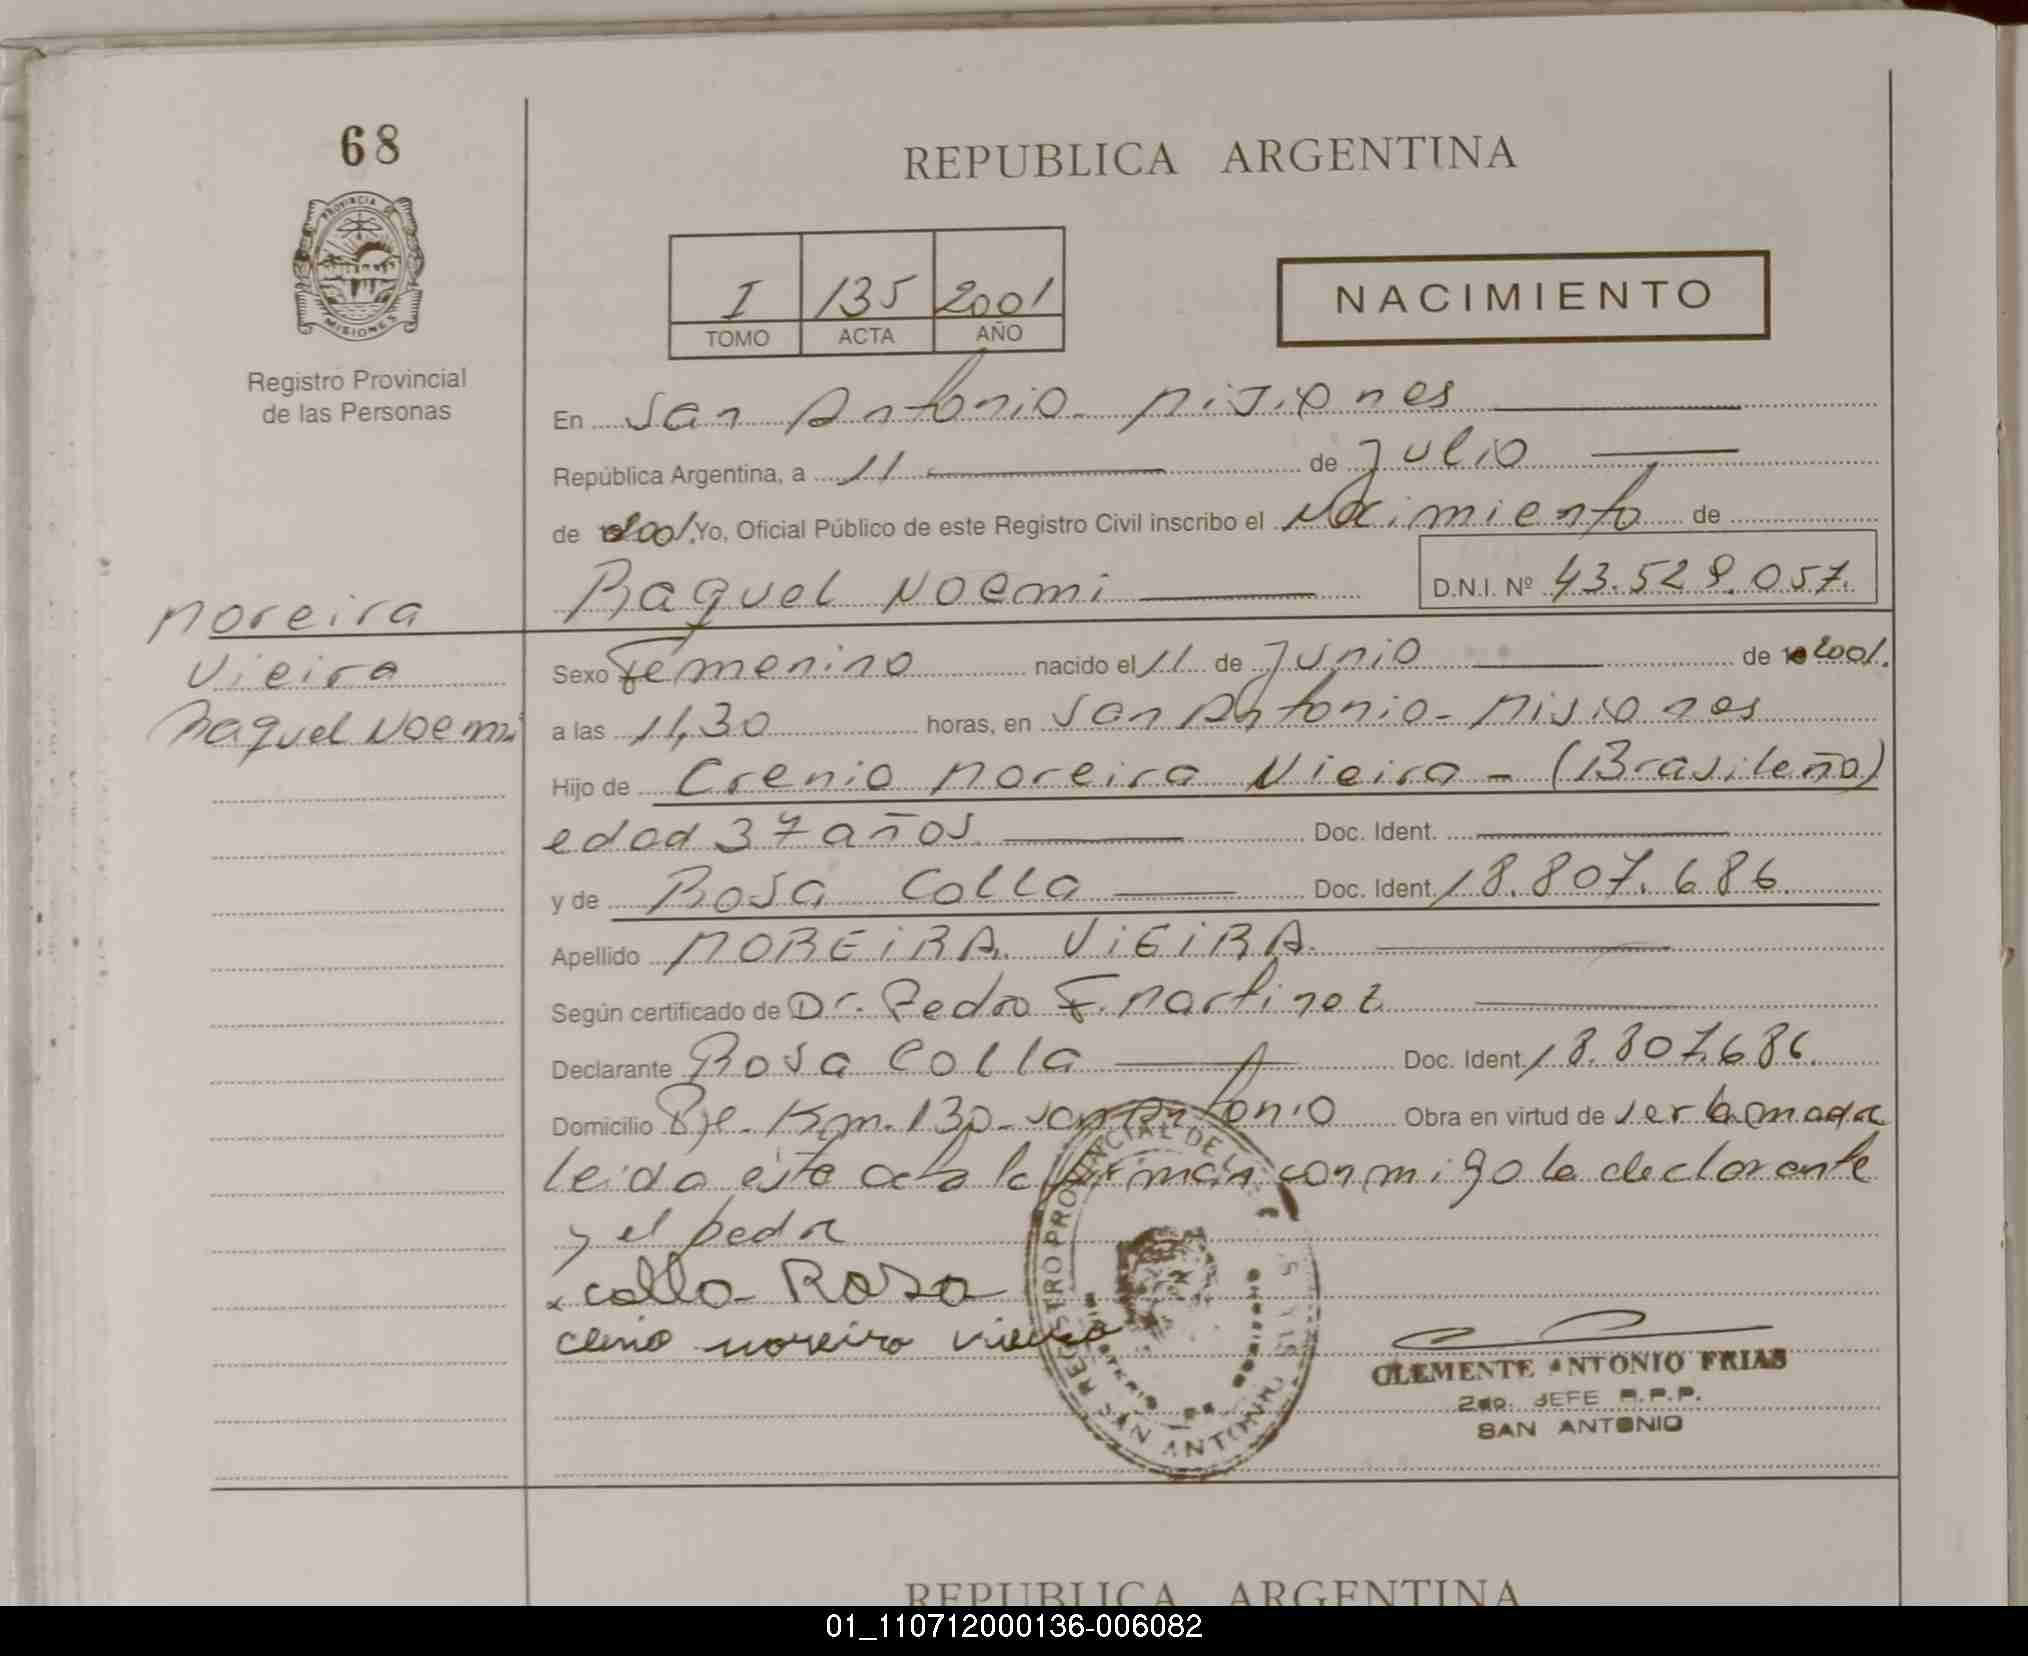 68
REPUBLICA ARGENTINA
PROVINCIA DE
MISIONES
Registro Provincial
de las Personas
I 135 2001
TOMO ACTA AÑO
NACIMIENTO
En San Antonio - Misiones
República Argentina, a 11 de Julio
de 2001. Yo, Oficial Público de este Registro Civil inscribo el Nacimiento de
Raquel Noemi D.N.I. Nº 43.529.057.
Moreira
Vieira
Raquel Noemi
Sexo Femenino nacido el 11 de Junio de 2001.
a las 11,30 horas, en San Antonio - Misiones
Hijo de Crenio Moreira Vieira - (Brasileño)
edad 37 años Doc. Ident.
y de Rosa Colla Doc. Ident. 18.807.686
Apellido MOREIRA VIEIRA
Según certificado de Dr. Pedro F. Martinez
Declarante Rosa Colla Doc. Ident. 18.807.686
Domicilio Km. 130 - San Antonio Obra en virtud de ser la madre
leida esta acta la firman conmigo la declarante
y el padre
x Colla Rosa
moreira vieira
REGISTRO PROVINCIAL DE L
SAN ANTONIO
CLEMENTE ANTONIO FRIAS
2do. JEFE R.P.P.
SAN ANTONIO
REPUBLICA ARGENTINA
01_110712000136-006082